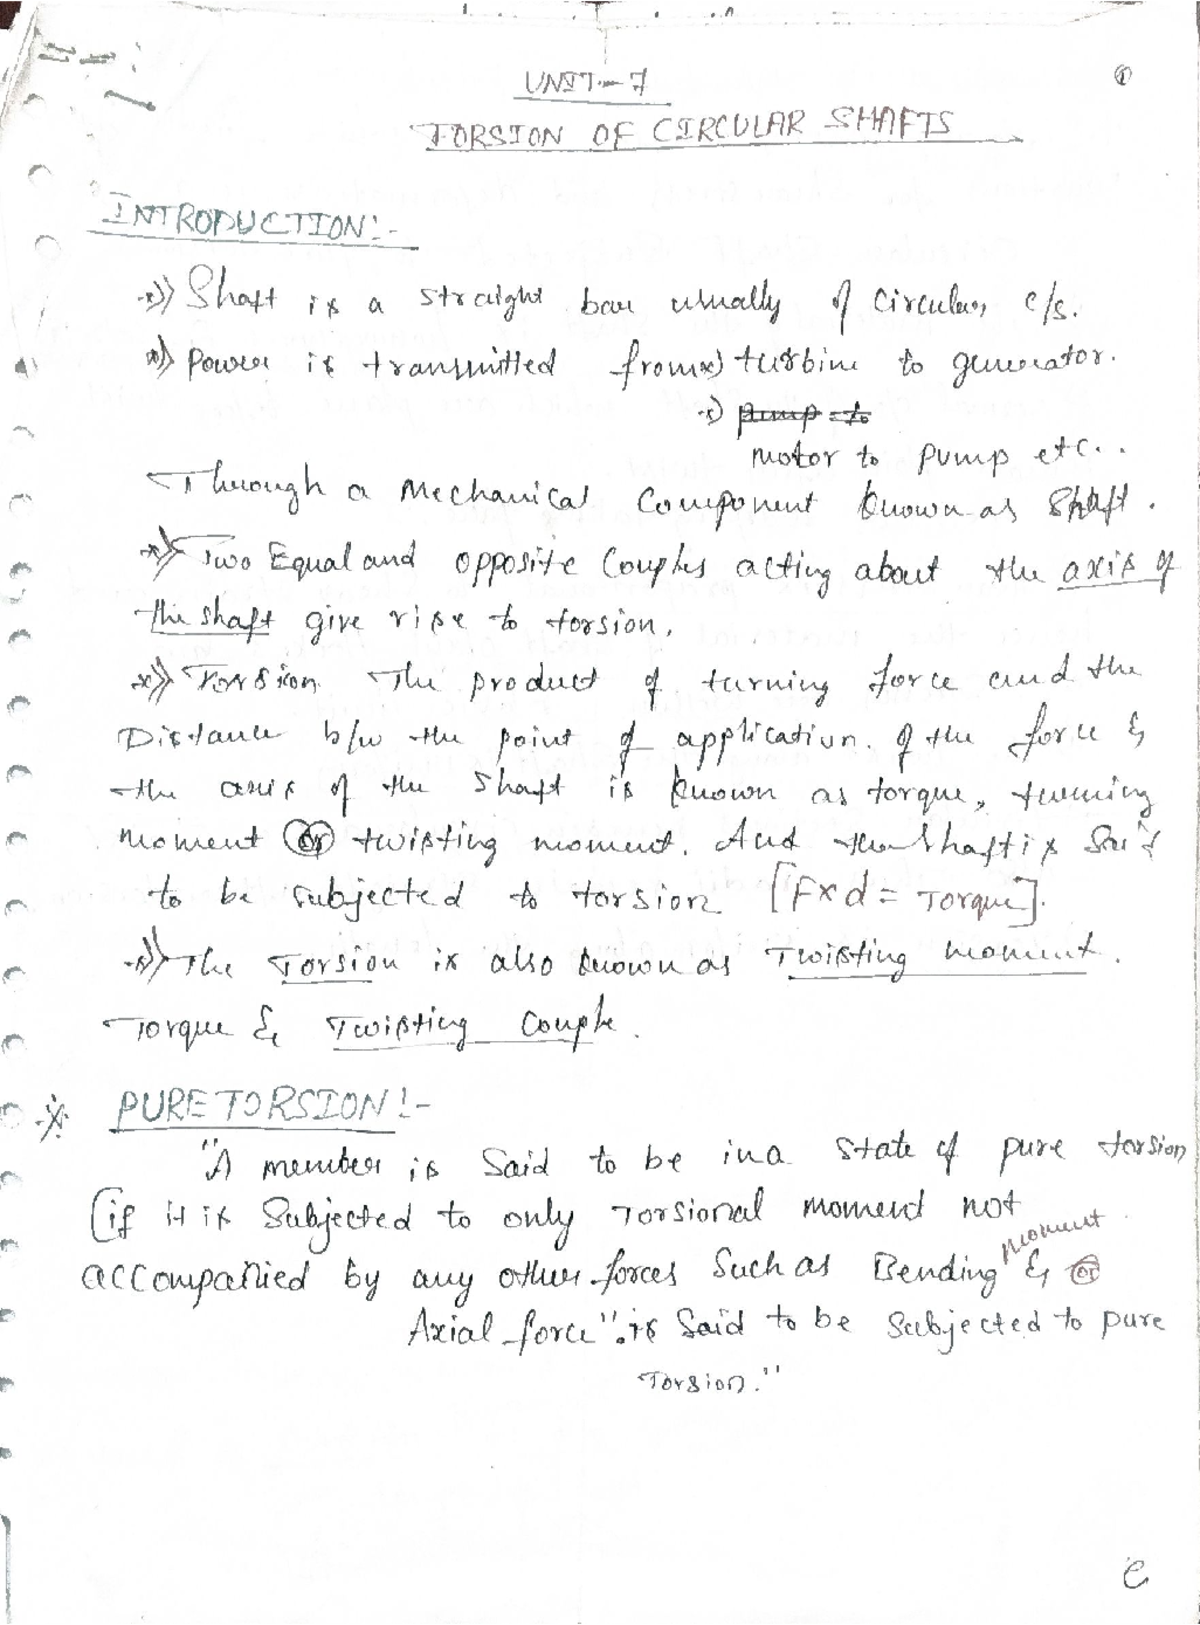 ①
UNIT-7
TORSION OF CIRCULAR SHAFTS
INTRODUCTION:-
*)» Shaft is a straight bar usually of circular c/s.
*)» Power is transmitted from *) turbine to generator.
*) pump to
motor to pump etc...
Through a Mechanical Component known as Shaft.
*)» Two Equal and opposite Couples acting about the axis of
the shaft give rise to torsion.
*)» Torsion The product of turning force and the
Distance b/w the point of application. of the force &
the axis of the shaft is known as torque, turning
moment (or) twisting moment. And the shaft is Said
to be subjected to torsion [F×d = Torque].
*)» The Torsion is also known as Twisting moment.
Torque & Twisting Couple.
* PURE TORSION:-
"A member is Said to be in a State of pure torsion
(if it is Subjected to only Torsional moment not
accompanied by any other forces Such as Bending moment & (or)
Axial force". is Said to be Subjected to pure
Torsion."
e